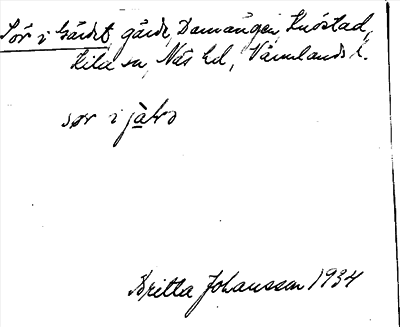 Sör i Gärdet gärde, Damängen, Knöstad,
Kila sn, Näs hd, Värmlands l.
sør i jàɫɔ
Britta Johansson 1934